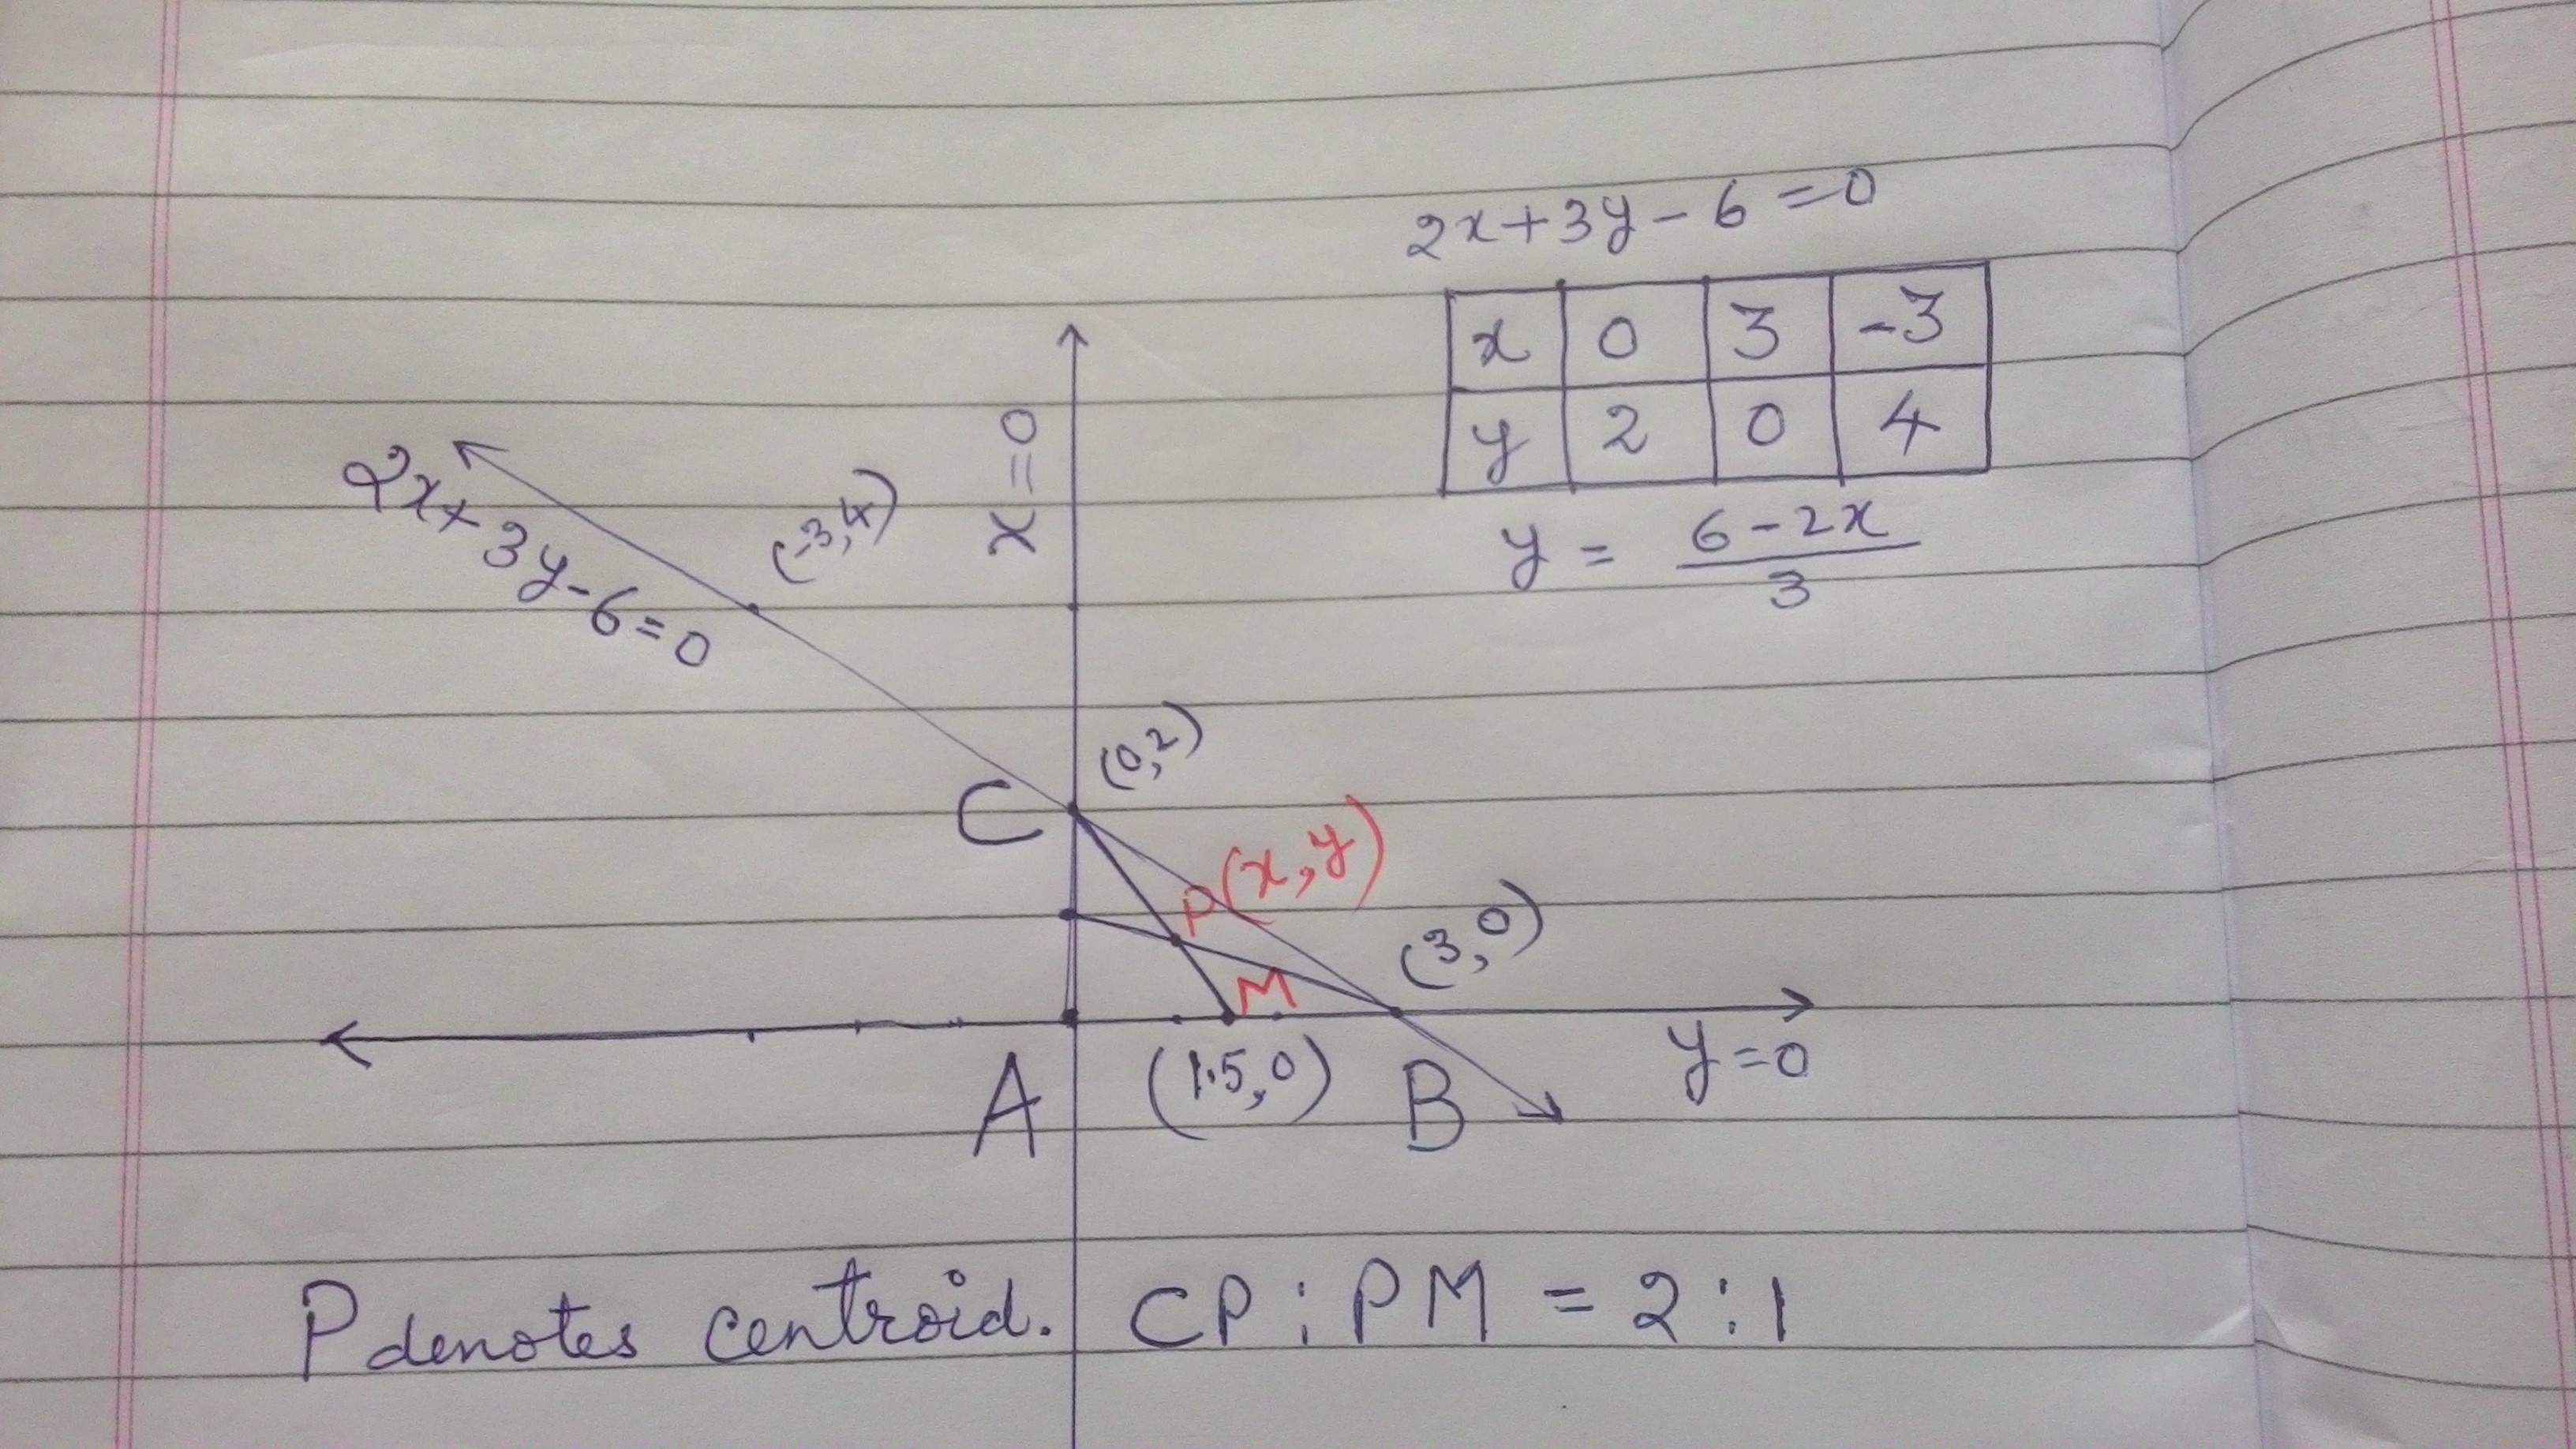 2x+3y-6=0
x 0 3 -3
y 2 0 4
y = (6-2x)/3
x=0
2x+3y-6=0
(-3,4)
(0,2)
C
P(x,y)
(3,0)
M
y=0
A
(1.5,0)
B
P denotes centroid. CP : PM = 2:1